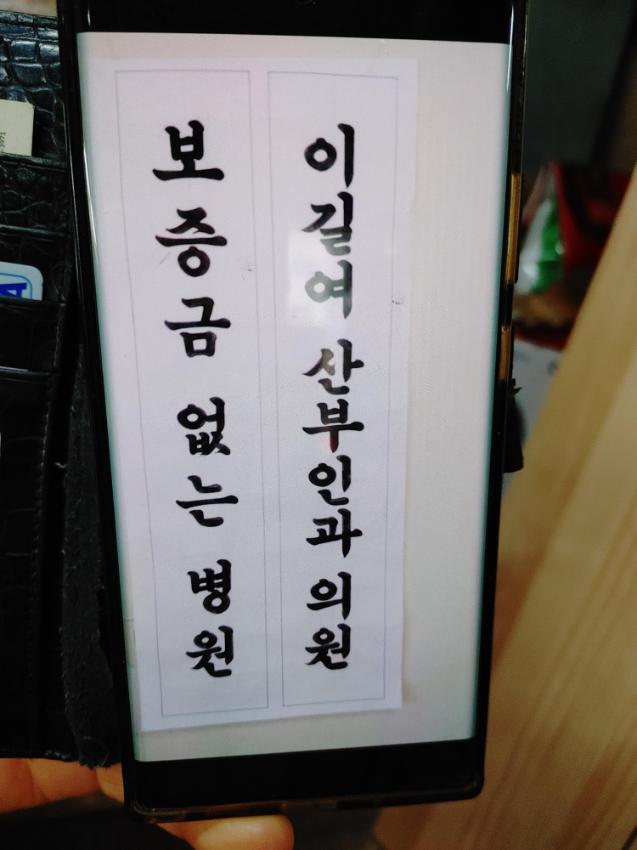 이길여 산부인과 의원
보증금 없는 병원